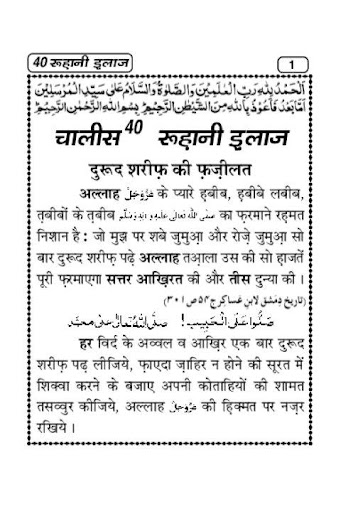 40 रूहानी इलाज
1
اَلْحَمْدُ لِلّٰهِ رَبِّ الْعٰلَمِيْنَ وَالصَّلٰوةُ وَالسَّلَامُ عَلٰى سَيِّدِ الْمُرْسَلِيْنَ
اَمَّا بَعْدُ فَاَعُوْذُ بِاللّٰهِ مِنَ الشَّيْطٰنِ الرَّجِيْمِ بِسْمِ اللّٰهِ الرَّحْمٰنِ الرَّحِيْمِ
चालीस 40 रूहानी इलाज
दुरूद शरीफ़ की फ़ज़ीलत
अल्लाह عَزَّوَجَلَّ के प्यारे हबीब, हबीबे लबीब,
त़बीबों के त़बीब صلَّى اللہُ تعالٰى عليهِ واٰلهٖ وسلَّم का फ़रमाने रह़मत
निशान है : जो मुझ पर शबे जुमुआ़ और रोज़े जुमुआ़ सो
बार दुरूद शरीफ़ पढ़े अल्लाह तआ़ला उस की सो ह़ाजतें
पूरी फ़रमाएगा सत्तर आख़िरत की और तीस दुन्या की ।
(تاریخ دِمَشق لابنِ عَساکِر ج ٥٤ ص ٣٠١)
صَلُّوْا عَلَى الْحَبِيْب! صلَّى اللهُ تعالٰى على محمَّد
हर विर्द के अव्वल व आख़िर एक बार दुरूद
शरीफ़ पढ़ लीजिये, फ़ाएदा ज़ाहिर न होने की सूरत में
शिक्वा करने के बजाए अपनी कोताहियों की शामत
तसव्वुर कीजिये, अल्लाह عَزَّوَجَلَّ की हि़क्मत पर नज़र
रखिये ।